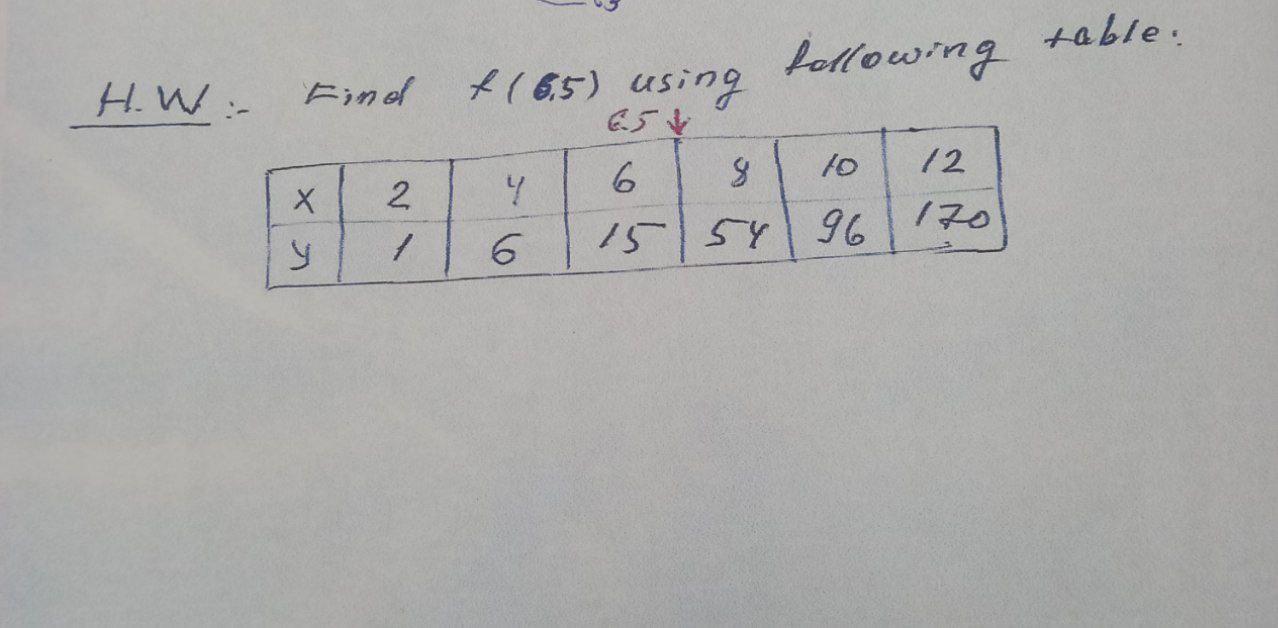 H.W:- Find f(6.5) using following table:
6.5 ↓
x 2 4 6 8 10 12
y 1 6 15 54 96 170